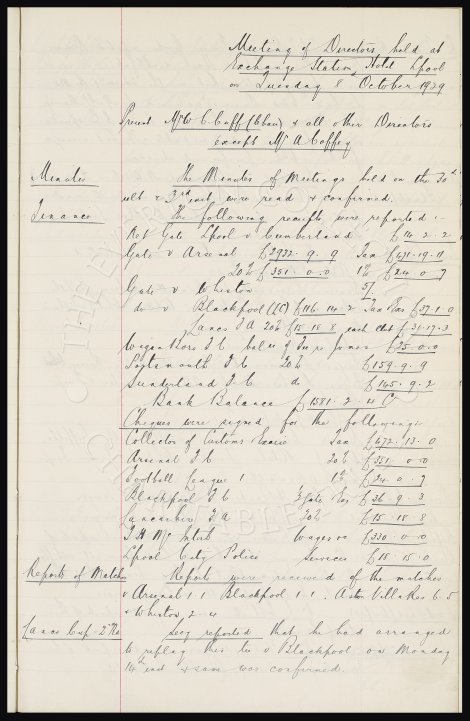 Meeting of Directors held at
Exchange Station Hotel Lpool
on Tuesday 8 October 1929
Present Mr W C Cuff (Chair) & all other Directors
except Mr A Coffey
Minutes The Minutes of Meetings held on the 30th
ult & 3rd inst were read & confirmed.
Finance The following receipts were reported :-
Net Gate Lpool v Cumberland £14 . 2 . 2
Gate v Arsenal £2932 . 9 . 9 Tax £471 . 19 . 11
20% £351 . 0 . 0 1% £24 . 0 . 7
Gate v Whiston 5/-
do v Blackpool (LC) £116 . 14 . 2 Tax £37 . 1 . 0
Lancs F A 20% £15 . 18 . 8 each club £31 . 17 . 3
Wigan Boro F C £25 . 0 . 0
Portsmouth F C 20% £159 . 9 . 9
Sunderland F C do £145 . 9 . 2
Bank Balance £1581 . 2 . 4 C
Cheques were signed for the following :
Collector of Customs & Excise Tax £472 . 13 . 0
Arsenal F C 20% £351 . 0 . 0
Football League 1% £24 . 0 . 7
Blackpool F C £36 . 9 . 3
Lancashire F A 20% £15 . 18 . 8
Wages £330 . 0 . 0
Lpool City Police Services £18 . 15 . 0
Reports of Matches Reports were received of the matches
v Arsenal 1 . 1 Blackpool 1 . 1 . Aston Villa Res 6 . 5
& Whiston, 2 - 4
Lancs Cup Secy reported that he had arranged
to replay this tie v Blackpool on Monday
14th inst & same was confirmed